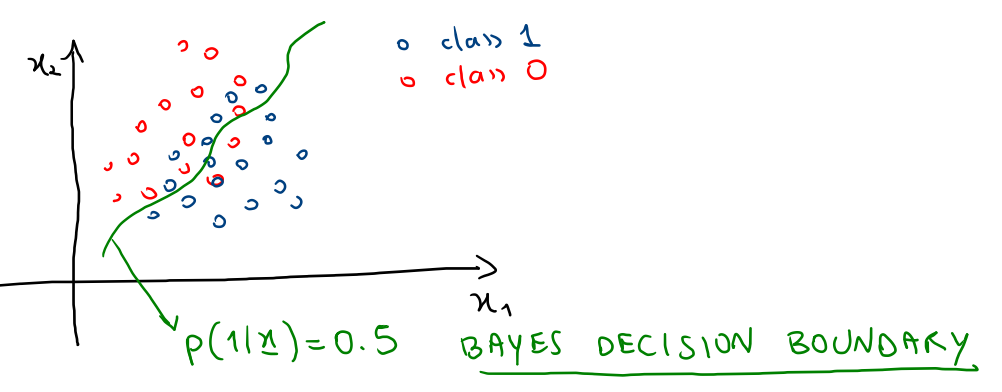 x₂
o class 1
o class 0
x₁
p(1|x) = 0.5 BAYES DECISION BOUNDARY